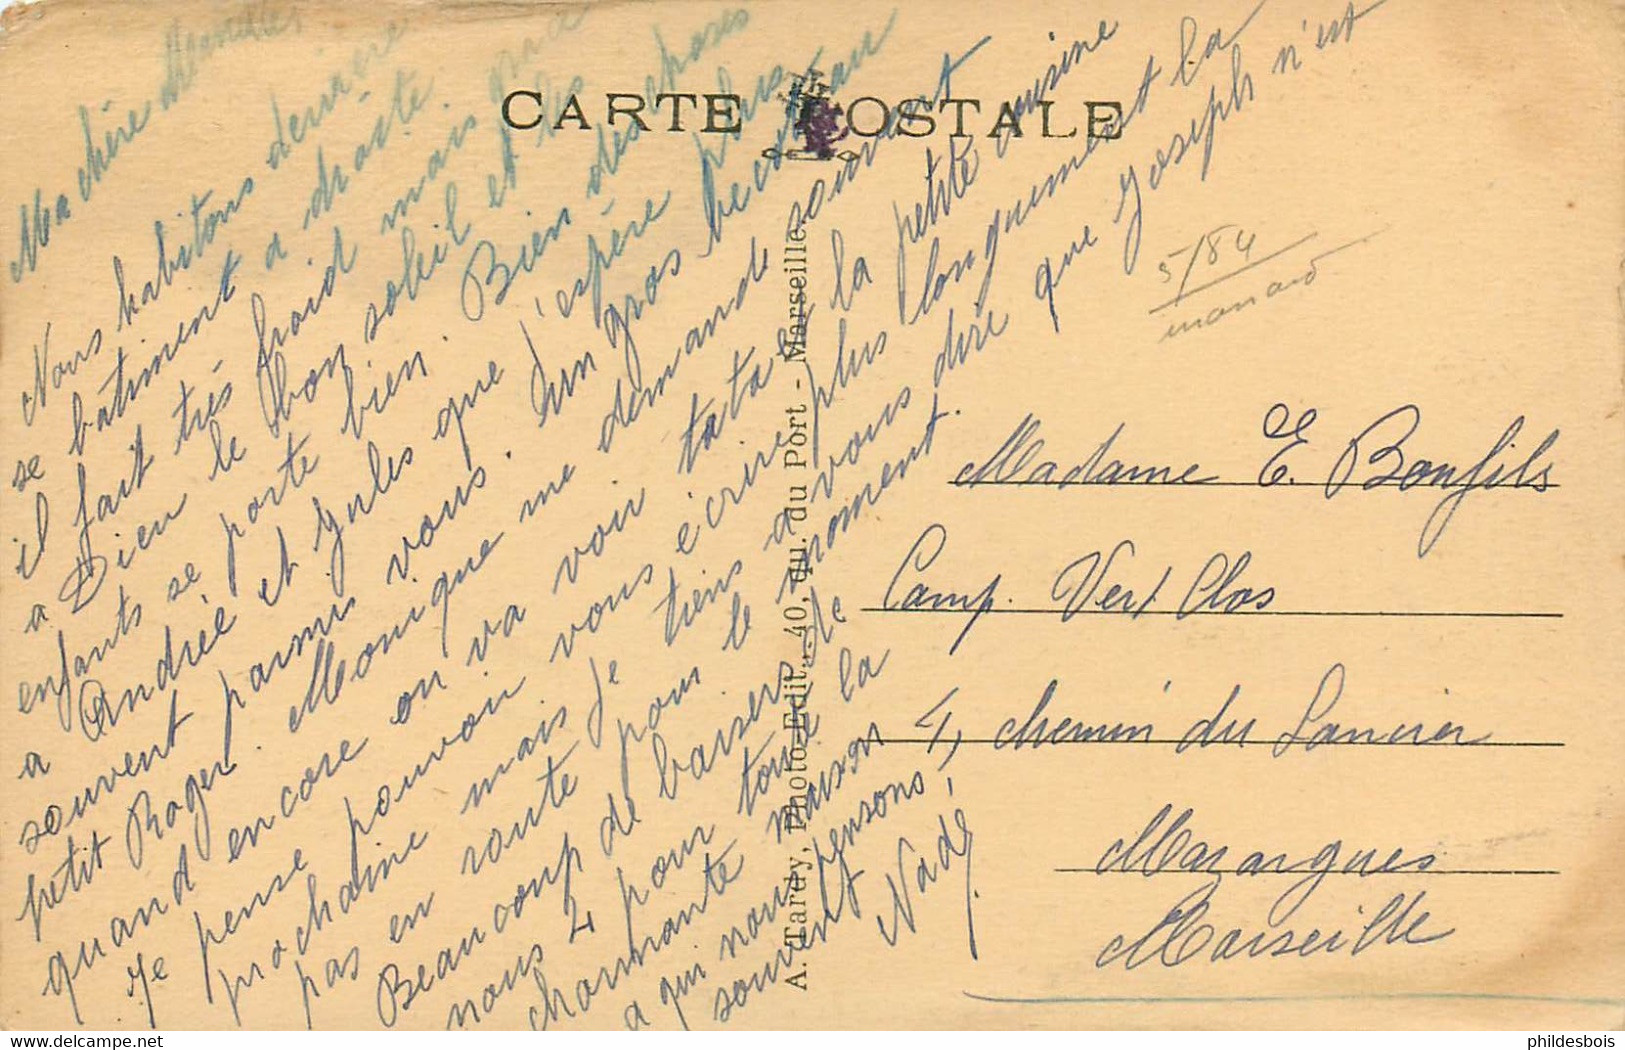 CARTE POSTALE
Ma chère
Nous habitons derrière
ce bâtiment à droite
il fait très froid mais grâce
a Dieu le bon soleil et les
enfants se porte bien. Bien des choses
a Andrée et Jules que j'espère plus
souvent parmi vous. Un gros bécot au
petit Roger. Monique me demande souvent
quand encore on va voir tata et la petite cousine
Je pense pouvoir vous écrire plus longuement la
prochaine mais je tiens a vous dire que Joseph n'est
pas en route pour le moment.
Beaucoup de baisers de
nous 4 pour toute la
charmante maison
a qui nous pensons
souvent
Nadj
A. Tardy, Photo-Edit., 40, qu. du Port - Marseille.
5/84
Madame E. Bonfils
Camp. Vert Clos
4, chemin du Lancier
Mazargues
Marseille
philde​sbois